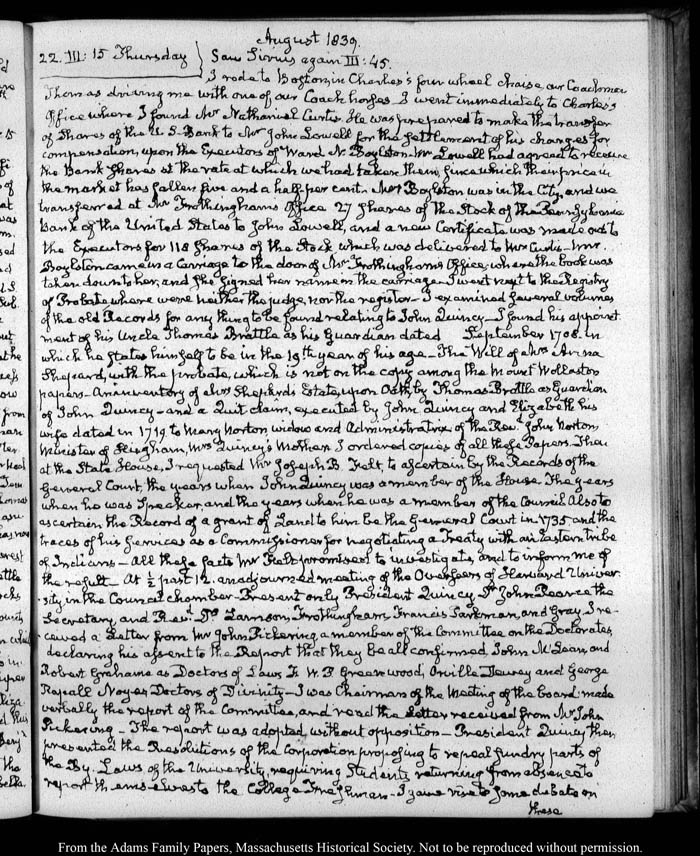 August 1839.
22. III: 15 Thursday } Saw Sirius again III: 45.
I rode to Boston in Charles's four wheel chaise, our Coachman
Thomas driving me with one of our Coach horses. I went immediately to Charles's
Office where I found Mr Nathaniel Curtis. He was prepared to make the transfer
of Shares of the U. S. Bank to Mr John Lowell for the settlement of his charges for
compensation, upon the Executors of Ward N. Boylston. Mr Lowell had agreed to receive
the Bank shares at the rate at which we had taken them, since which their price in
the market has fallen five and a half per cent. Mrs Boylston was in the City, and we
transferred at Mr Frothingham's Office 27 shares of the Stock of the Pennsylvania
Bank of the United States to John Lowell, and a new Certificate was made out to
the Executors for 118 shares of the Stock which was delivered to Mr Curtis. Mrs.
Boylston came in a Carriage to the door of Mr Frothingham's Office, where the book was
taken down to her, and she signed her name in the carriage. I went next to the Registry
of Probate where were neither the judge, nor the register. I examined several volumes
of the old Records for any thing to be found relating to John Quincy. I found his appoint
ment of his Uncle Thomas Brattle as his Guardian dated September 1708. in
which he states himself to be in the 19th year of his age. The Will of Mrs Anna
Shepard, with the probate, which is not on the copy among the Mount Wollaston
papers. An inventory of Mrs Shepard's Estate, upon Oath, by Thomas Brattle as Guardian
of John Quincy—and a Quit claim, executed by John Quincy and Elizabeth his
wife dated in 1719 to Mary Norton widow and Administratrix of the Revd John Norton,
Minister of Hingham, Mrs Quincy's Mother. I ordered copies of all these Papers. Then
at the State House, I requested Mr Joseph B. Felt, to ascertain by the Records of the
General Court, the years when John Quincy was a member of the House. The years
when he was Speaker, and the years when he was a member of the Council. Also to
ascertain the Record of a grant of Land to him be the General Court in 1735 and the
traces of his services as a Commissioner for negotiating a Treaty with an Eastern tribe
of Indians—All these facts Mr Felt promised to investigate, and to inform me of
the result. At ½ past 12. an adjourned meeting of the Overseers of Harvard Univer
sity, in the Council chamber. Present only President Quincy, Dr John Pearce the
Secretary and Revd. Drs Lamson, Frothingham, Francis Parkman, and Gray. I re-
ceived a Letter from Mr John Pickering a member of the Committee on the Doctorates,
declaring his assent to the Report that they be all confirmed, John McLean, and
Robert Grahame as Doctors of Laws F. W. P Greenwood, Orville Dewey and George
Rapall Noyes Doctors of Divinity—I was Chairman of the Meeting of the board, made
verbally the report of the Committee, and read the Letter received from Mr John
Pickering. The report was adopted without opposition—President Quincy then
presented the Resolutions of the Corporation proposing to repeal sundry parts of
the By-Laws of the University, requiring Students returning from absence to
report themselves to the College Freshman. I gave rise to some debate on
these
From the Adams Family Papers, Massachusetts Historical Society. Not to be reproduced without permission.